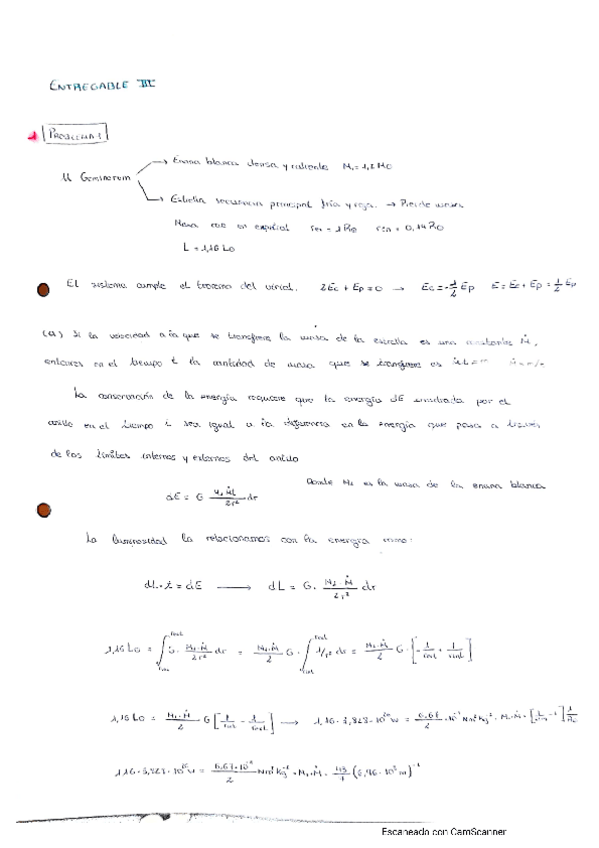 ENTREGABLE III
PROBLEMA 1
U Geminorum
Enana blanca densa y caliente M₁ = 1,2 M⊙
Estrella secuencia principal fría y roja. → Pierde masa
Masa cae en espiral r = 1 R⊙ r = 0,14 R⊙
L = 1,16 L⊙
El sistema cumple el teorema del virial. 2Ec + Ep = 0 → Ec = -1/2 Ep E = Ec + Ep = 1/2 Ep
(a) Si la velocidad a la que se transfiere la masa de la estrella es una constante Ṁ,
entonces en el tiempo t la cantidad de masa que se transfiere es
La conservación de la energía requiere que la energía dE irradiada por el
anillo en el tiempo t sea igual a la diferencia en la energía que pasa a través
de los límites internos y externos del anillo
Donde M₁ es la masa de la enana blanca
dE = G M₁Ṁt/2r² dr
La luminosidad la relacionamos con la energía como:
dL·t = dE → dL = G· M₁·Ṁ/2r² dr
1,16 L⊙ = ∫ G· M₁·Ṁ/2r² dr = M₁·Ṁ/2 G · ∫ 1/r² dr = M₁·Ṁ/2 G · [-1/rext + 1/rint]
1,16 L⊙ = M₁·Ṁ/2 G [1/rint - 1/rext] → 1,16 · 3,828 · 10²⁶ W =
1,16 · 3,828 · 10²⁶ W =
Escaneado con CamScanner